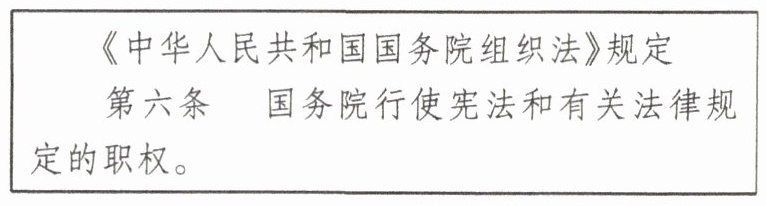 《中华人民共和国国务院组织法》规定
第六条　国务院行使宪法和有关法律规
定的职权。